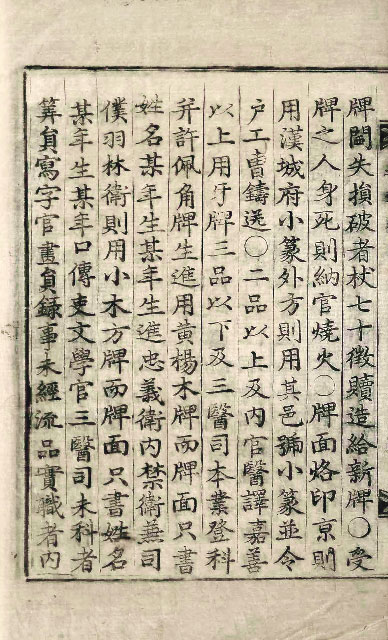 牌閪失損破者杖七十徵贖造給新牌〇受
牌之人身死則納官燒火〇牌面烙印京則
用漢城府小篆外方則用其邑號小篆並令
戶工曹鑄送〇二品以上及內官醫譯嘉善
以上用牙牌三品以下及三醫司本業登科
幷許佩角牌生進用黃楊木牌而牌面只書
姓名某年生某年生進忠義衛內禁衛兼司
僕羽林衛則用小木方牌而牌面只書姓名
某年生某年口傳吏文學官三醫司未科者
筭員寫字官畫員錄事未經流品實職者內